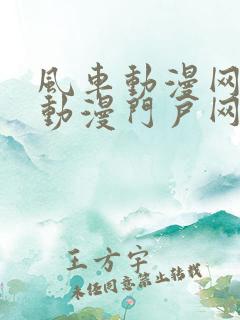 風車動漫网
動漫門戶网
王方宇
未经同意禁止转载